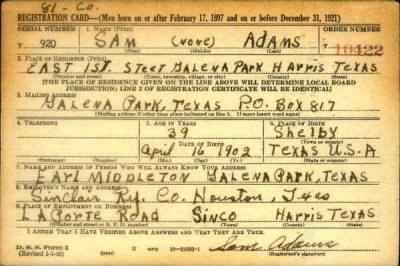 81 - Co.
REGISTRATION CARD—(Men born on or after February 17, 1897 and on or before December 31, 1921)
SERIAL NUMBER 1. NAME (Print) ORDER NUMBER
T 920 SAM (NONE) ADAMS T 10422
(First) (Middle) (Last)
2. PLACE OF RESIDENCE (Print)
EAST 1ST Steet GALENA PARK HARRIS TEXAS
(Number and street) (Town, township, village, or city) (County) (State)
[THE PLACE OF RESIDENCE GIVEN ON THE LINE ABOVE WILL DETERMINE LOCAL BOARD
JURISDICTION; LINE 2 OF REGISTRATION CERTIFICATE WILL BE IDENTICAL]
3. MAILING ADDRESS
GALENA PARK, TEXAS P.O. BOX 817
[Mailing address if other than place indicated on line 2. If same insert word same]
4. TELEPHONE 5. AGE IN YEARS 6. PLACE OF BIRTH
39 Shelby
DATE OF BIRTH (Town or county)
April 16 1902 TEXAS U.S.A
(Exchange) (Number) (Mo.) (Day) (Yr.) (State or country)
7. NAME AND ADDRESS OF PERSON WHO WILL ALWAYS KNOW YOUR ADDRESS
EARL MIDDLETON GALENA PARK, TEXAS
8. EMPLOYER'S NAME AND ADDRESS
Sinclair Ry. Co. Houston, Texas
9. PLACE OF EMPLOYMENT OR BUSINESS
LAPORTE ROAD SINCO HARRIS TEXAS
(Number and street or R. F. D. number) (Town) (County) (State)
I AFFIRM THAT I HAVE VERIFIED ABOVE ANSWERS AND THAT THEY ARE TRUE.
D. S. S. FORM 1
(Revised 1-1-42) Sam Adams
(Registrant's signature)